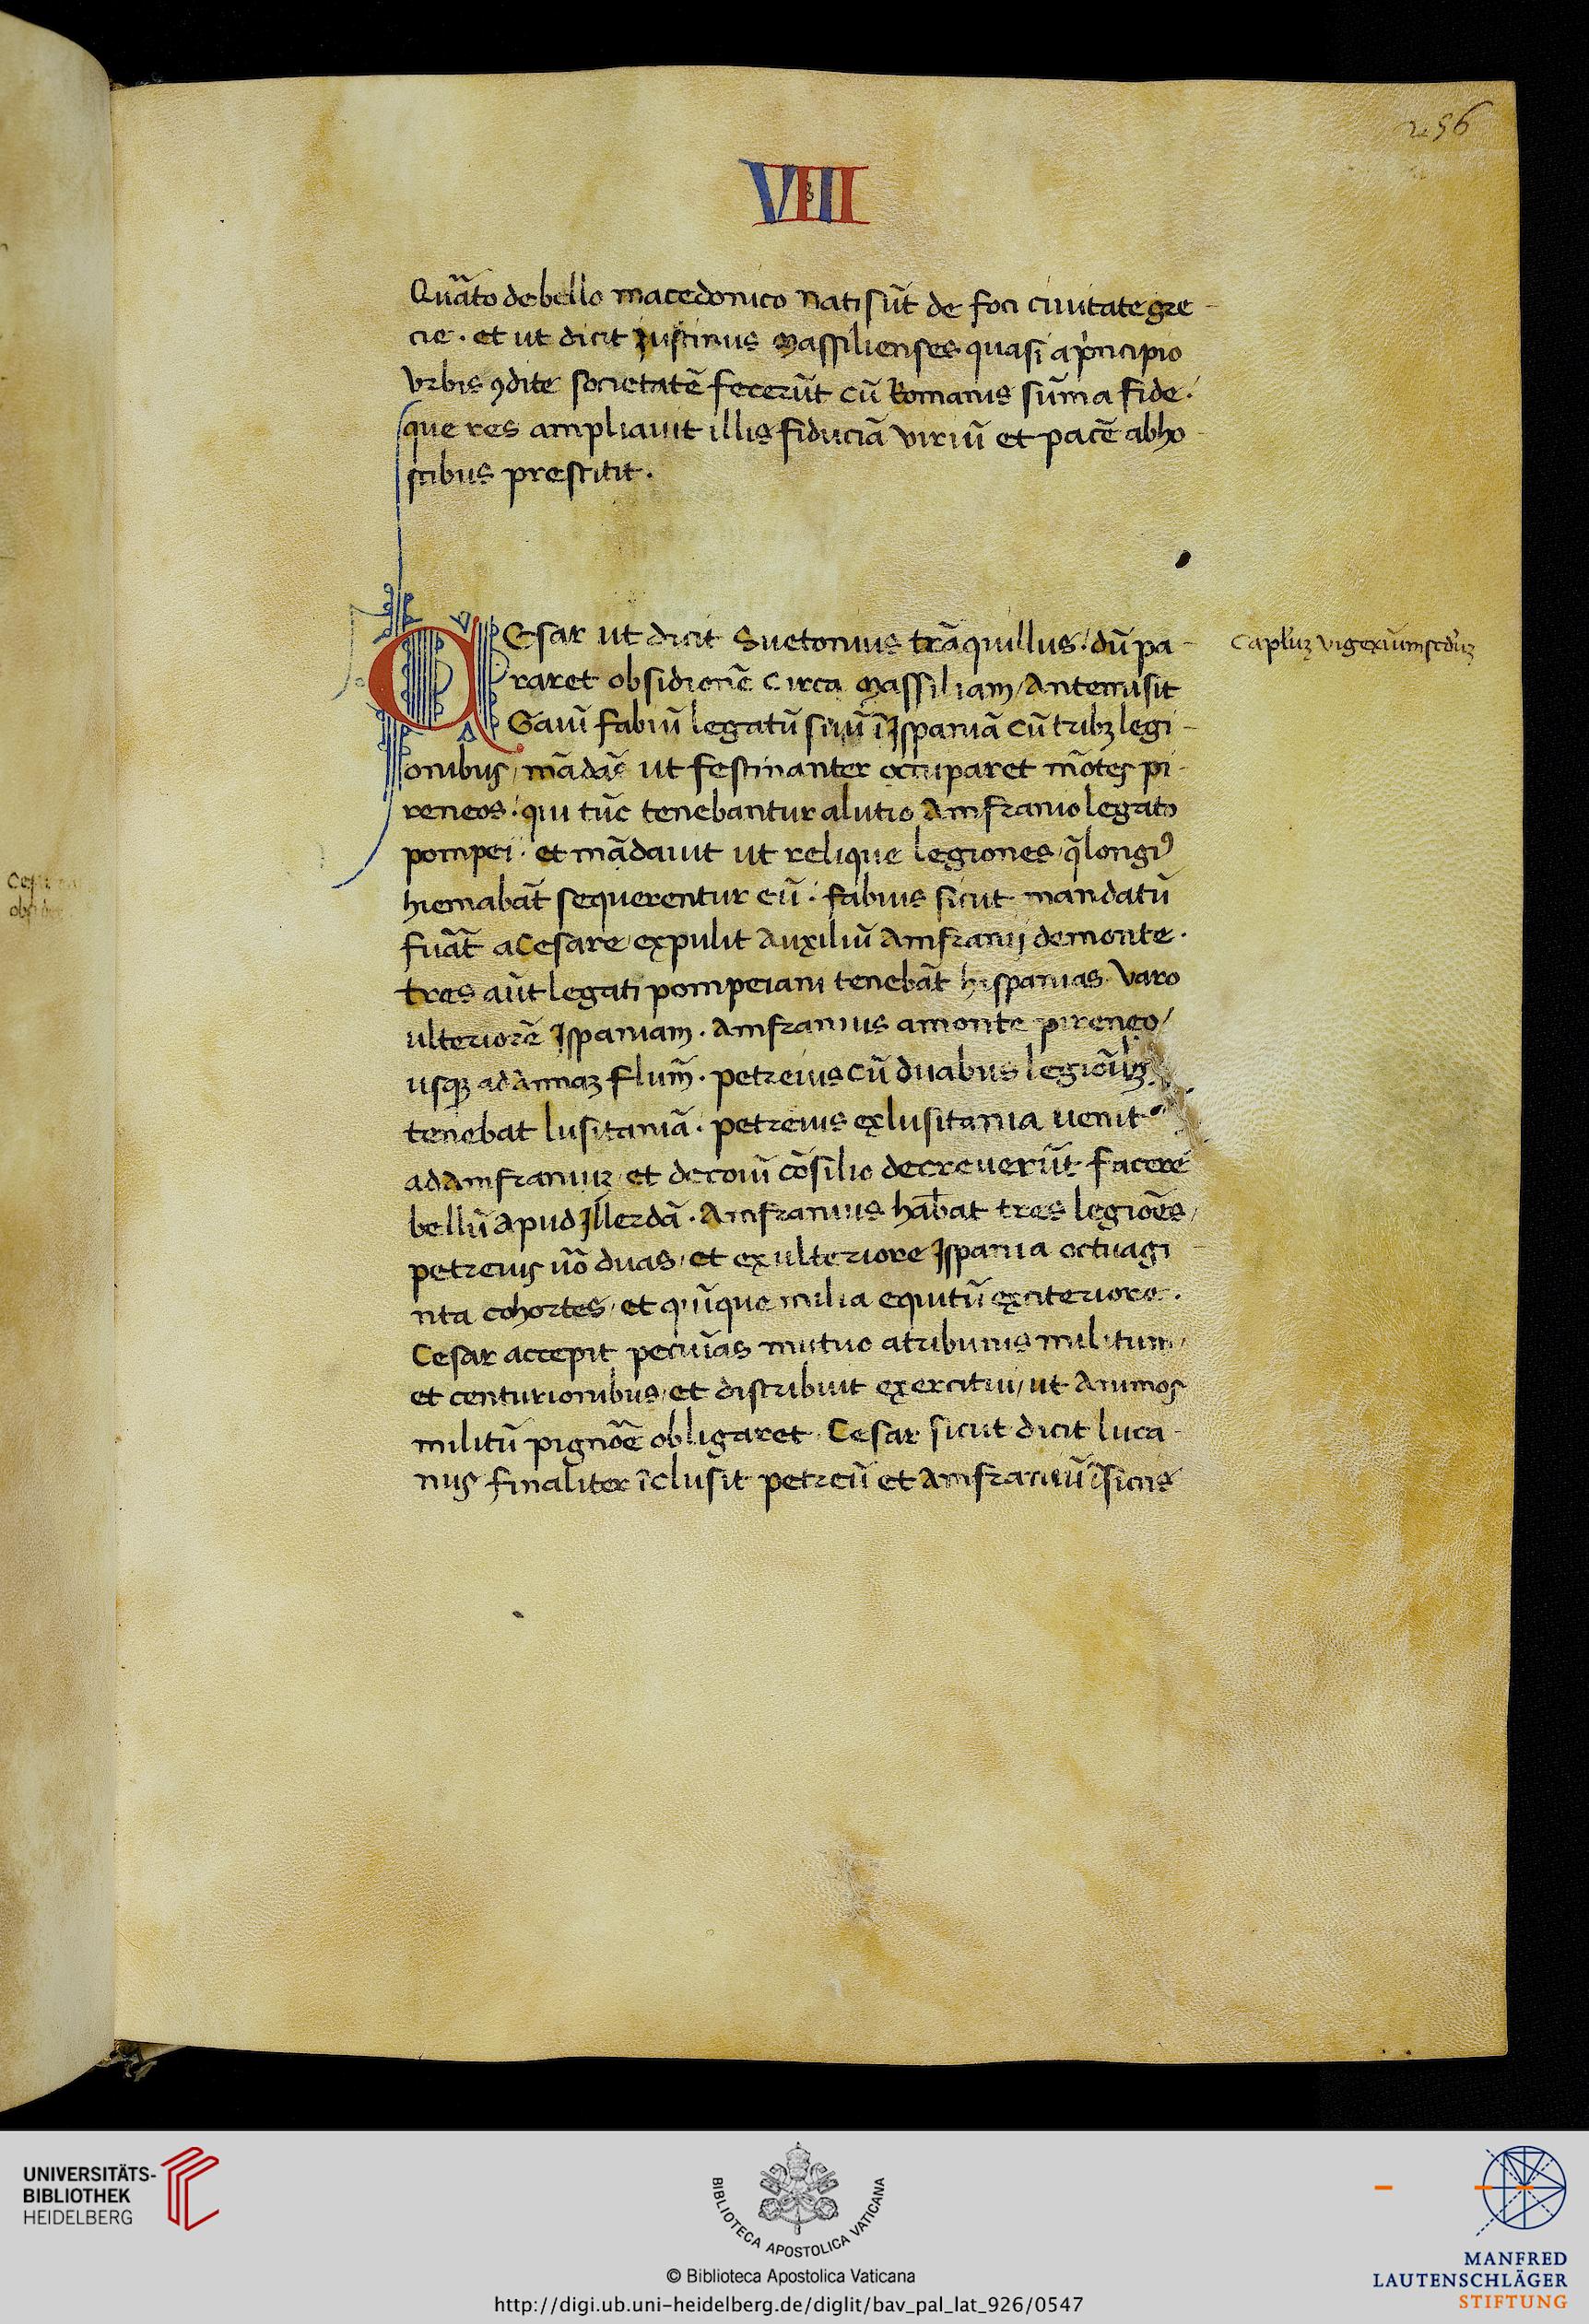 256
VIII
Quãto de bello macedonico nati sũt de foci ciuitate gre-
cie · et ut dicit justinus Massilienses quasi a pͥncipio
vrbis ꝯdite societatẽ fecerũt cũ Romanis sũma fide ·
que res ampliauit illis fiduciã viriũ et pacẽ abho-
stibus prestitit ·
CEsar ut dicit Suetonius trãquillus · dũ pa-
raret obsidionẽ circa Massiliam / Antemisit
Gaiũ fabiũ legatũ suũ ĩ Jspaniã cũ tribꝫ legi-
onibus / mãdãs ut festinanter occuparet mõtes pi-
reneos · qui tũc tenebantur a lutio Amfranio legato
pompei · et mãdauit ut relique legiones / q̃ longiꝰ
hiemabãt sequerentur eũ · fabius sicut mandatũ
fuãt a Cesare / expulit Auxiliũ Amfranij de monte ·
tres aũt legati pompeiani tenebãt hispanias · Varo
ulteriorẽ Jspaniam · Amfranius a monte pireneo /
usqꝫ ad Annaꝫ flum̃ · petreius cũ duabus legiõibꝫ
tenebat lusitaniã · petreius ex lusitania uenit
ad Amfraniuꝫ / et de coĩu cõsilio decreuerũt facere
bellũ apud Jllerdã · Amfranius hab̄at tres legiões /
petreius ũo duas / et ex ulteriore Jspania octuagi-
nta cohortes / et quĩque milia equitũ ex citeriore ·
Cesar accepit pecuĩas mutuo a tribunis militum /
et centurionibus / et distribuit exercitui / ut Animos
militũ pignõe obligaret · Cesar sicut dicit luca-
nus finaliter ĩclusit petreiũ et Amfraniũ ĩ sicits
Capl̃uꝫ vigexiũm scd̃uꝫ
UNIVERSITÄTS-
BIBLIOTHEK
HEIDELBERG
BIBLIOTECA APOSTOLICA VATICANA
© Biblioteca Apostolica Vaticana
http://digi.ub.uni-heidelberg.de/diglit/bav_pal_lat_926/0547
MANFRED
LAUTENSCHLÄGER
STIFTUNG